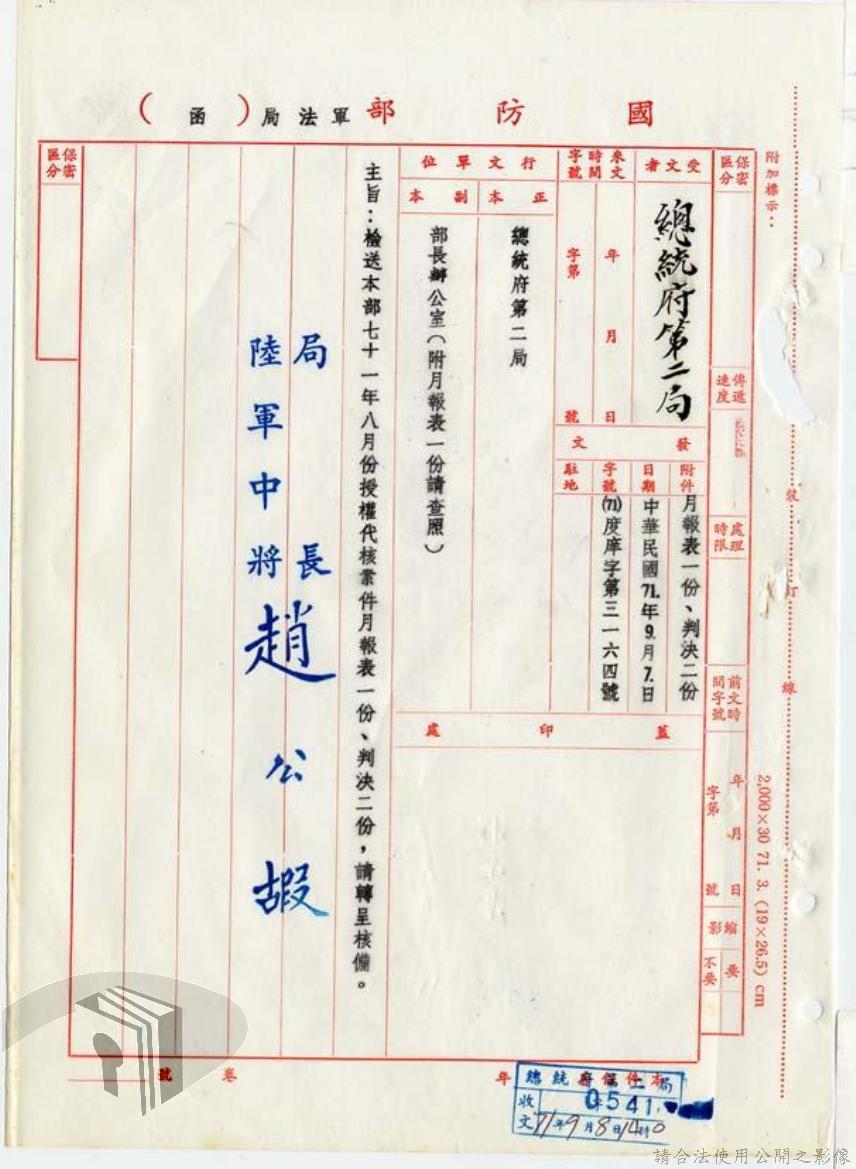 國防部軍法局（函）
附加標示：
保密區分
傳遞速度
處理時限
前文時間字號
年 月 日
字第 號
縮影
要
不要
受文者
總統府第二局
來文
時間
年 月 日
字號
字第 號
發文
附件
月報表一份、判決二份
日期
中華民國71.年9.月7.日
字號
(71)度庠字第三一六四號
駐地
行文單位
正本
總統府第二局
副本
部長辦公室（附月報表一份請查照）
蓋印處
主旨：檢送本部七十一年八月份授權代核案件月報表一份、判決二份，請轉呈核備。
局長
陸軍中將趙公嘏
保密區分
裝訂線
2,000×30 71. 3. (19×26.5) cm
年
卷
號
總統府第二局
收文
0541
71年9月8日14時0
請合法使用公開之影像